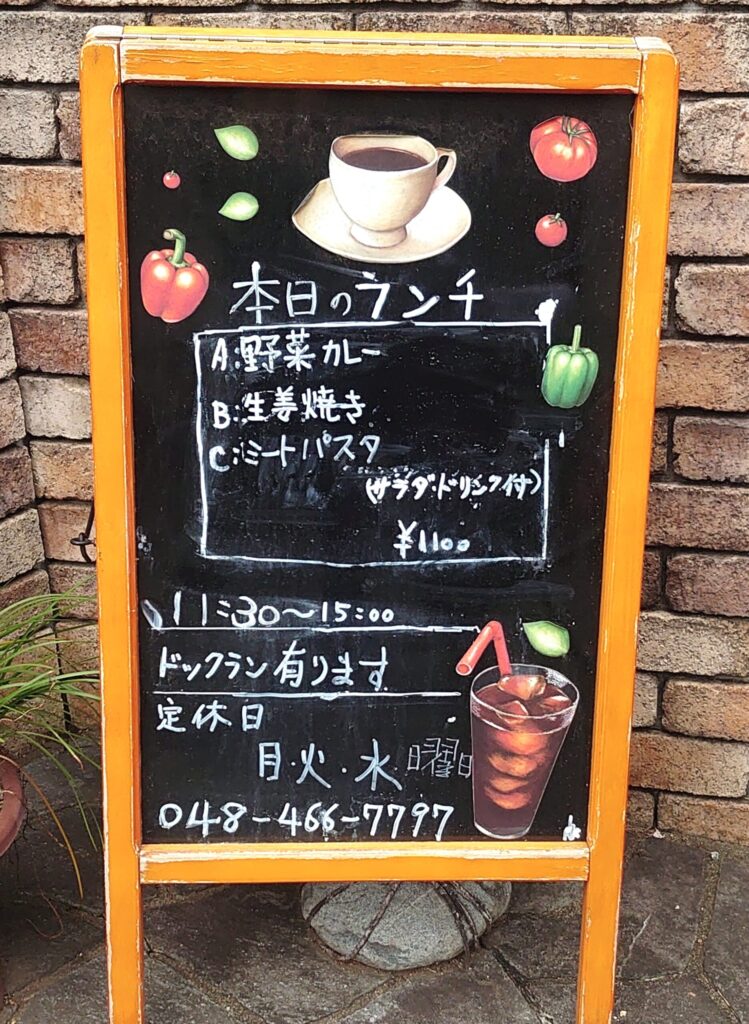 本日のランチ
A:野菜カレー
B:生姜焼き
C:ミートパスタ
(サラダ・ドリンク付)
¥1100
11:30～15:00
ドックラン有ります
定休日
月・火・水曜日
048-466-7797